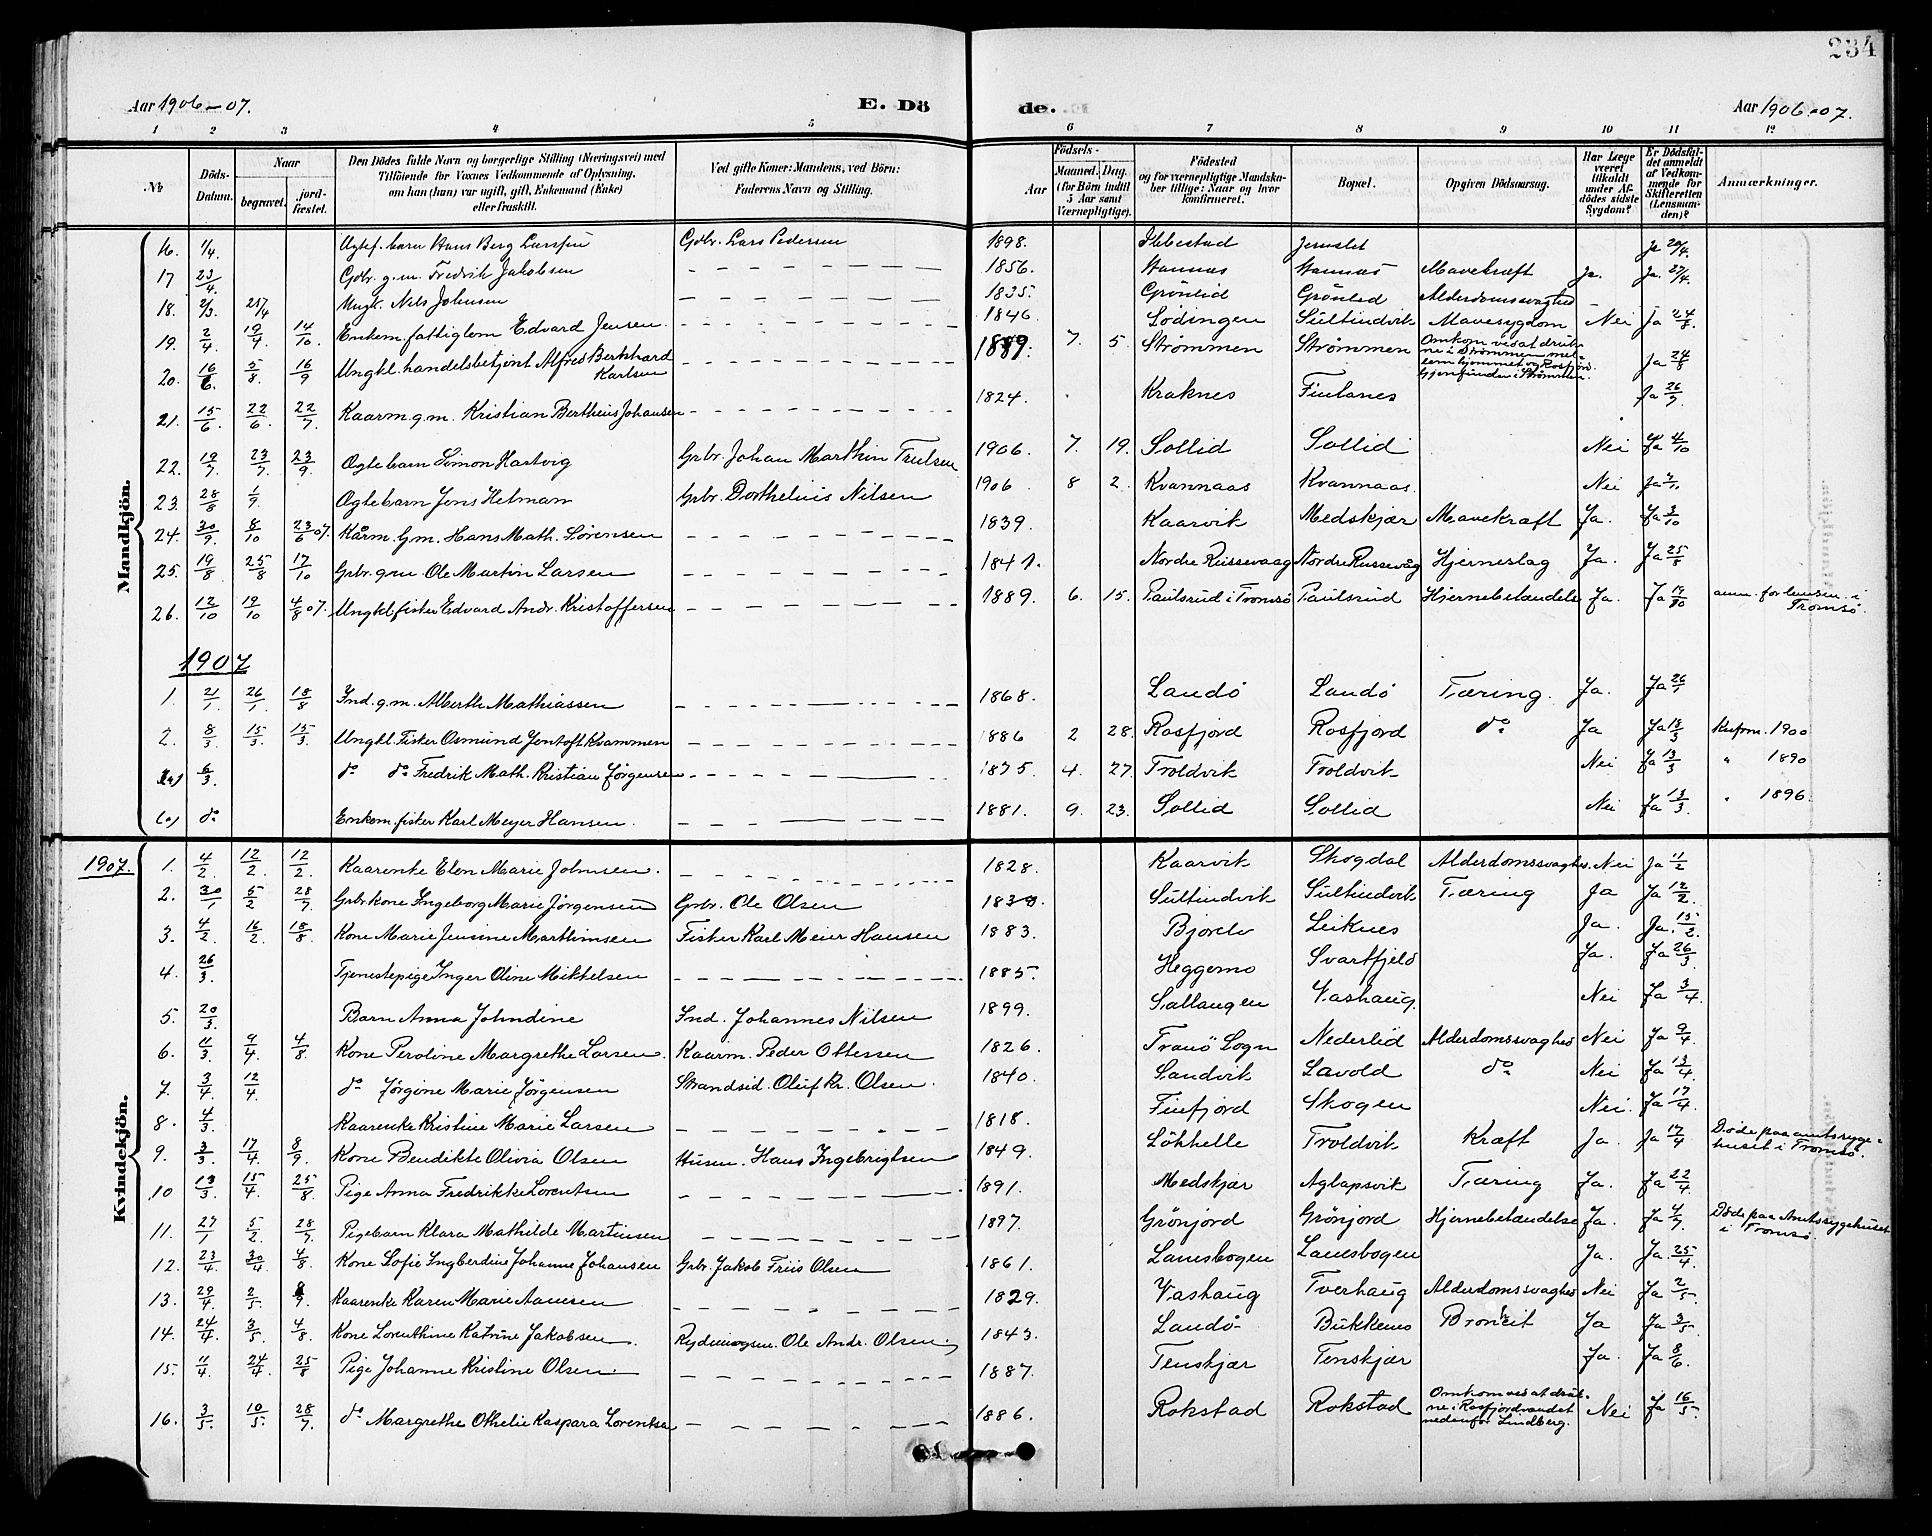 234
Aar 1906-07.
E. Dö
de.
Aar 1906-07.
1 2 3 4 5 6 7 8 9 10 11 12
No
Döds-Datum.
Naar
begravet.
jord-fæstet.
Den Dödes fulde Navn og borgerlige Stilling (Næringsvei) med
Tilföiende for Voxnes Vedkommende af Oplysning,
om han (hun) var ugift, gift, Enkemand (Enke)
eller fraskilt.
Ved gifte Koner: Mandens, ved Börn:
Faderens Navn og Stilling.
Födsels-
Aar
Maaned. Dag.
(for Börn indtil
5 Aar samt
Værnepligtige).
Födested
og for værnepligtige Mandska-
ber tillige: Naar og hvor
konfirmeret.
Bopæl.
Opgiven Dödsaarsag.
Har Læge
været
tilkaldt
under Af-
dödes sidste
Sygdom?
Er Dödsfal-
det anmeldt
af Vedkom-
mende for
Skifteretten
(Lensman-
den)?
Anmærkninger.
Mandkjön.
16. 1/4. Ægtef. barn Hans Berg Larssen Gdbr. Lars Pedersen 1898. Ibbestad Ja 20/4.
17 23/4. Gdbr. g.m. Fredrik Jakobsen 1856. Hannæs Hannæs Mavekræft Ja. Ja. 27/4.
18. 2/3. 25/4 Ungk. Nils Johnsen 1835. Grönlid Grönlid Alderdomssvaghed
19. 2/4. 19/4 14/10 Enkem. fattiglem Edvard Jensen. 1846. Lodingen Sultindvik Mavesygdom Nei Ja
20. 16/6 5/8. 16/9 Ungkl. handelsbetjent Alfred Berkhard Karlsen 1889. 7. 5. Strømmen Strømmen Omkom ved at drukne i Strømmen mellem hjemmet og Rosfjord. Gjenfunden i Strømmen. Ja 24/8
21. 15/6. 22/6 22/7. Kaarm. g.m. Kristian Bertheus Johansen 1824. Kraknes Finlanes Ja 26/7
22. 19/7. 23/7. 23/9. Ægtebarn Simon Hartvig Grbr. Johan Marthin Trulsen 1906. 7. 19. Sollid Sollid Nei Ja 4/10
23. 28/8 1/9. Ægtebarn Jens Helmam Grbr. Dortheluis Nilsen 1906 8 2. Kvannaas Kvannaas. Nei Ja
24. 30/9 8/10 23/6 07. Kårm. G.m. Hans Math. Sørensen 1839. Kaarvik Medskjær Mavekræft Ja. Ja 3/10
25. 19/8 25/8 17/10 Grbr. g.m Ole Martin Larsen 1841. Nordre Russevaag Nordre Russevåg Hjerneslag Ja. Ja 25/8
26. 12/10 19/10 4/8 07. Ungkl. fisker Edvard Andr. Kristoffersen 1889. 6. 15. Paulsrud i Tromsø Paulsrud Hjernebetændelse Ja. Ja 19/10 anm. for lensm. i Tromsø.
1907
1. 21/1. 26/1. 18/8 Ind. g.m. Alberth Mathiassen 1868. Landö Landö Tæring. Ja. Ja 26/1
2. 8/3. 15/3. 15/3. Ungkl. Fisker Osmund Jentoft Kvammen 1886 2 28. Rosfjord Rosfjord do Ja Ja 18/3 Kufrm. 1900
6/3. do do Fredrik Math. Kristian Jørgensen 1875 4. 27. Troldvik Troldvik Nei Ja 13/3 " 1890
do Enkem. fisker Karl Meyer Hansen. 1881. 9. 23. Sollid Sollid Nei Ja 13/3 " 1896.
Kvindekjön.
1907. 1. 4/2. 12/2. 12/2. Kaarenke Elen Marie Johnsen. 1828. Kaarvik Skogdal Alderdomssvaghed. Nei Ja 11/2
2. 30/1 5/2 28/7 Grbr kone Ingeborg Marie Jørgensen Grbr. Ole Olsen Sultindvik Sultindvik Tæring Ja Ja 12/2.
3. 4/2. 16/2. 18/8. Kone Marie Jensine Marthinsen Fisker Karl Meier Hansen 1883. Bjorelv Leiknes Ja. Ja. 15/2.
4. 26/3. Tjenestepige Inger Oline Mikkelsen 1885. Heggemo Svartfjeld Ja. Ja 26/3.
5. 20/3. Barn Anna Johndine Ind. Johannes Nilsen 1899. Sallangen Vashaug. Nei Ja 3/4.
6. 11/3. 9/4. 4/8. Kone Peroline Margrethe Larsen. Kaarm. Peder Ottessen 1826. Tranö Sogn Nederlid Alderdomssvaghed Nei Ja 9/4.
7. 3/4. 12/4. do Jørgine Marie Jørgensen Strandsid. Oluf Kr. Olsen. 1840. Sandvik Lavold do Nei Ja 13/4.
8. 4/3. Kaarenke Kristine Marie Larsen 1818. Finfjord Skogen Nei. Ja 17/4.
9. 3/3. 17/4. 8/9. Kone Bendikte Olivia Olsen Husm. Hans Ingebrigtsen 1849. Lökhelle Troldvik Kræft Ja. Ja 17/4 Døde paa amtssygehuset i Tromsø.
10 13/3. 15/4. 25/8. Pige Anna Fredrikke Lorentsen 1891. Medskjær Aglapsvik Tæring Ja. Ja 22/4.
11. 27/1 5/2. 28/7. Pigebarn Klara Mathilde Martinsen 1897. Grönjord Grönjord Hjernebetændelse Ja. Ja Døde paa Amtssygehuset i Tromsø.
12. 23/4. 30/4 4/8. Kone Sofie Ingberdine Johanne Johansen Grbr. Jakob Friis Olsen 1861. Lanesbogen Lanesbogen Ja. Ja. 25/4.
13. 29/4. 2/5. 8/9. Kaarenke Karen Marie Aanesen 1829. Vashaug Tverhaug Alderdomssvaghed Nei Ja 2/5.
14. 24/4. 3/5. 4/8. Kone Lornthine Katrine Jakobsen. Ole Andr. Olsen. 1843. Landö Bukkenes Bronkit Ja Ja 3/5.
15. 11/4. 24/4. 25/8 Pige Johanne Kristine Olsen. 1887. Tenskjær Tenskjær Ja. Ja 8/6.
16. 3/5. 10/5. 28/7. do Margrethe Othelie Kaspara Lorentsen 1886. Rokstad Rokstad Omkom ved at drukne i Rosfjordvandet nedenfor Lindberg. Nei Ja 16/5.